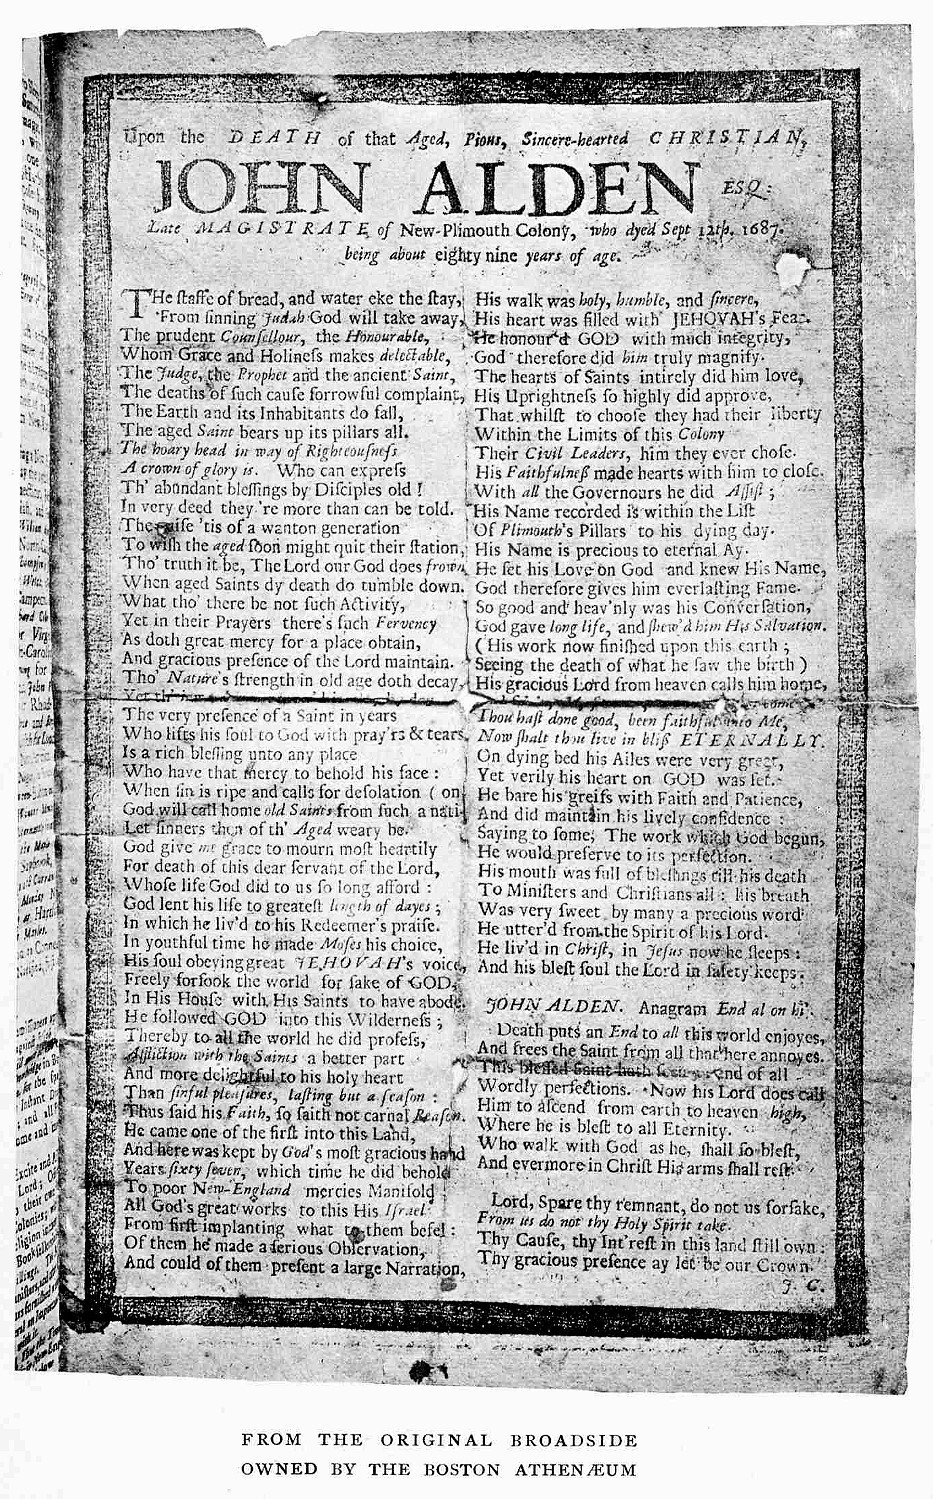 Upon the DEATH of that Aged, Pious, Sincere-hearted CHRISTIAN,
JOHN ALDEN ESQ:
Late MAGISTRATE of New-Plimouth Colony, who dyed Sept 12th. 1687.
being about eighty nine years of age.
THe staffe of bread, and water eke the stay,
From sinning Judah God will take away,
The prudent Counsellour, the Honourable,
Whom Grace and Holiness makes delectable,
The Judge, the Prophet and the ancient Saint,
The deaths of such cause sorrowful complaint,
The Earth and its Inhabitants do fall,
The aged Saint bears up its pillars all.
The hoary head in way of Righteousness
A crown of glory is. Who can express
Th' abundant blessings by Disciples old!
In very deed they're more than can be told.
The guise 'tis of a wanton generation
To wish the aged soon might quit their station,
Tho' truth it be, The Lord our God does frown
When aged Saints dy death do tumble down.
What tho' there be not such Activity,
Yet in their Prayers there's such Fervency
As doth great mercy for a place obtain,
And gracious presence of the Lord maintain.
Tho' Nature's strength in old age doth decay,
Yet
The very presence of a Saint in years
Who lifts his soul to God with pray'rs & tears,
Is a rich blessing unto any place
Who have that mercy to behold his face:
When sin is ripe and calls for desolation (on
God will call home old Saints from such a nati-
Let sinners then of th' Aged weary be.
God give me grace to mourn most heartily
For death of this dear servant of the Lord,
Whose life God did to us so long afford:
God lent his life to greatest length of dayes;
In which he liv'd to his Redeemer's praise.
In youthful time he made Moses his choice,
His soul obeying great JEHOVAH's voice,
Freely forsook the world for sake of GOD,
In His House with His Saints to have abode.
He followed GOD into this Wilderness;
Thereby to all the world he did profess,
Affliction with the Saints a better part
And more delightful to his holy heart
Than sinful pleasures, lasting but a season:
Thus said his Faith, so saith not carnal Reason.
He came one of the first into this Land,
And here was kept by God's most gracious hand
Years sixty seven, which time he did behold
To poor New-England mercies Manifold
All God's great works to this His Israel
From first implanting what to them befel:
Of them he made a serious Observation,
And could of them present a large Narration,
His walk was holy, humble, and sincere,
His heart was filled with JEHOVAH's Fear.
He honour'd GOD with much integrity,
God therefore did him truly magnify.
The hearts of Saints intirely did him love,
His Uprightness so highly did approve,
That whilst to choose they had their liberty
Within the Limits of this Colony
Their Civil Leaders, him they ever chose.
His Faithfulness made hearts with him to close.
With all the Governours he did Assist;
His Name recorded is within the List
Of Plimouth's Pillars to his dying day.
His Name is precious to eternal Ay.
He set his Love on God and knew His Name,
God therefore gives him everlasting Fame.
So good and heav'nly was his Conversation,
God gave long life, and shew'd him His Salvation.
(His work now finished upon this earth;
Seeing the death of what he saw the birth)
His gracious Lord from heaven calls him home,
Thou hast done good, been faithful unto Me,
Now shalt thou live in bliss ETERNALLY.
On dying bed his Ailes were very great,
Yet verily his heart on GOD was set.
He bare his greifs with Faith and Patience,
And did maintain his lively confidence:
Saying to some, The work which God begun,
He would preserve to its perfection.
His mouth was full of blessings till his death
To Ministers and Christians all: his breath
Was very sweet by many a precious word
He utter'd from the Spirit of his Lord.
He liv'd in Christ, in Jesus now he sleeps:
And his blest soul the Lord in safety keeps.
JOHN ALDEN. Anagram End al on hi'.
Death puts an End to all this world enjoyes,
And frees the Saint from all that here annoyes.
This blessed Saint hath End of all
Wordly perfections. Now his Lord does call
Him to ascend from earth to heaven high,
Where he is blest to all Eternity.
Who walk with God as he, shall so blest,
And evermore in Christ His arms shall rest.
Lord, Spare thy remnant, do not us forsake,
From us do not thy Holy Spirit take.
Thy Cause, thy Int'rest in this land still own:
Thy gracious presence ay let be our Crown.
J. C.
FROM THE ORIGINAL BROADSIDE
OWNED BY THE BOSTON ATHENÆUM